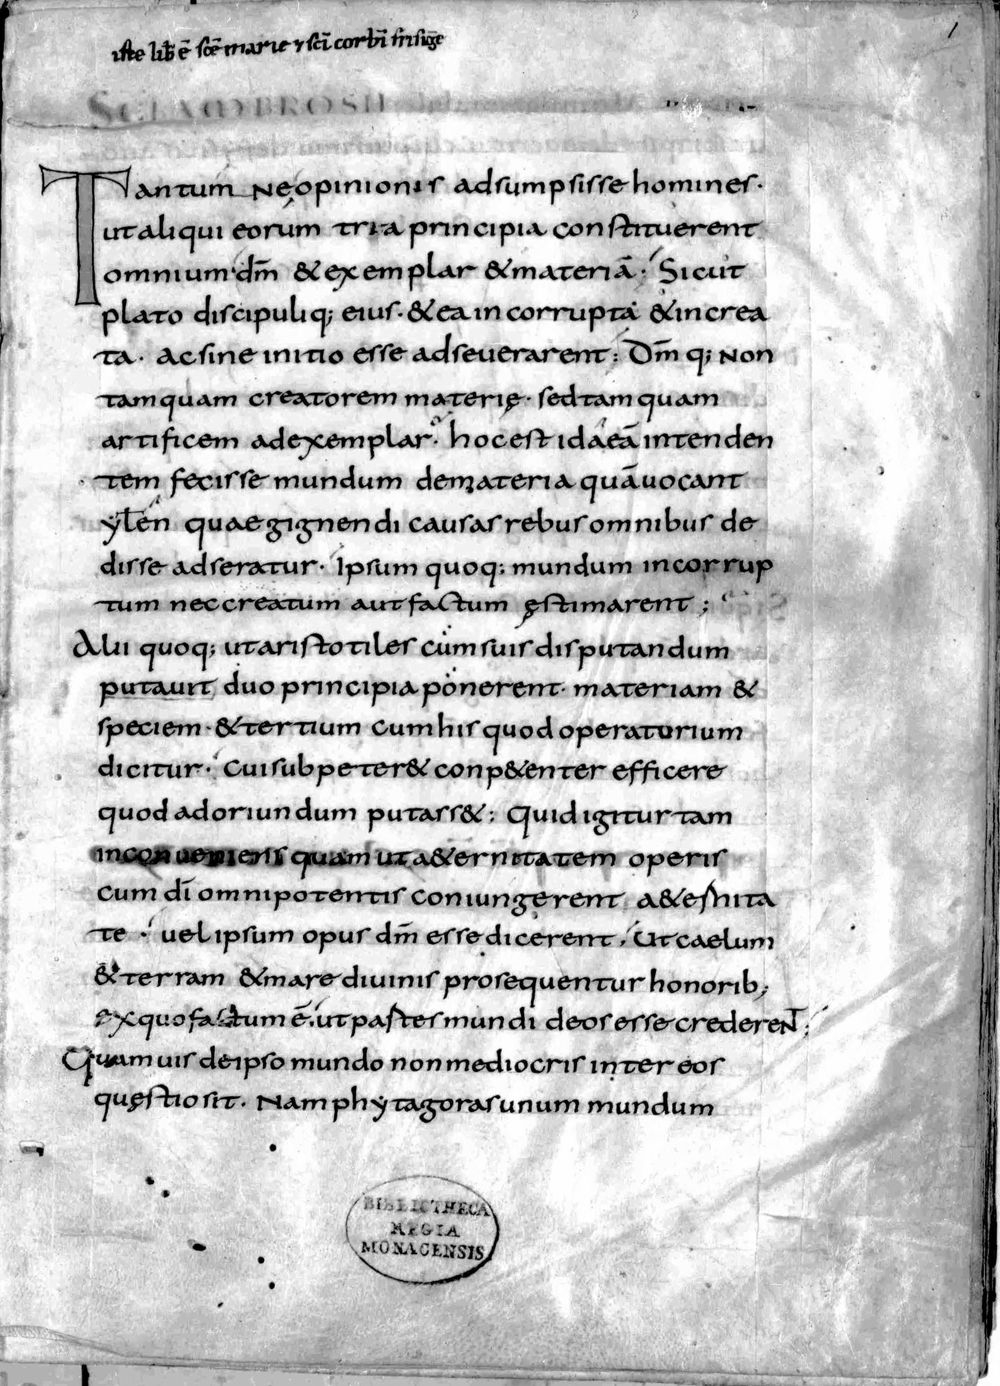 iste lib̄ ē scē marie ⁊ sci corb̄i frisīge
1
SCI AMBROSII
Tantum ne opinionis adsumpsisse homines·
ut aliqui eorum tria principia constituerent
omnium· dm̄ & exemplar & materiā· Sicut
plato discipuliq; eius· & ea incorrupta & increa
ta· ac sine initio esse adseuerarent; Dm̄q; non
tamquam creatorem materię· sed tamquam
artificem ad exemplar· hoc est idaeā intenden
tem fecisse mundum de materia quā uocant
ylen quae gignendi causas rebus omnibus de
disse adseratur· Ipsum quoq; mundum incorrup
tum nec creatum aut factum ęstimarent;
Alii quoq; ut aristotiles cum suis disputandum
putauit duo principia ponerent· materiam &
speciem· & tertium cum his quod operatorium
dicitur· Cui subpeter& conp&enter efficere
quod adoriundum putass&; Quid igitur tam
inconueniens quam ut a&ernitatem operis
cum dī omnipotentis coniungerent a&ernita
te· uel ipsum opus dm̄ esse dicerent, Ut caelum
& terram & mare diuinis prosequentur honorib;
ex quo factum ē· ut partes mundi deos esse crederent̄;
Quamuis de ipso mundo non mediocris inter eos
quęstio sit· Nam phytagoras unum mundum
BIBLIOTHECA
REGIA
MONACENSIS